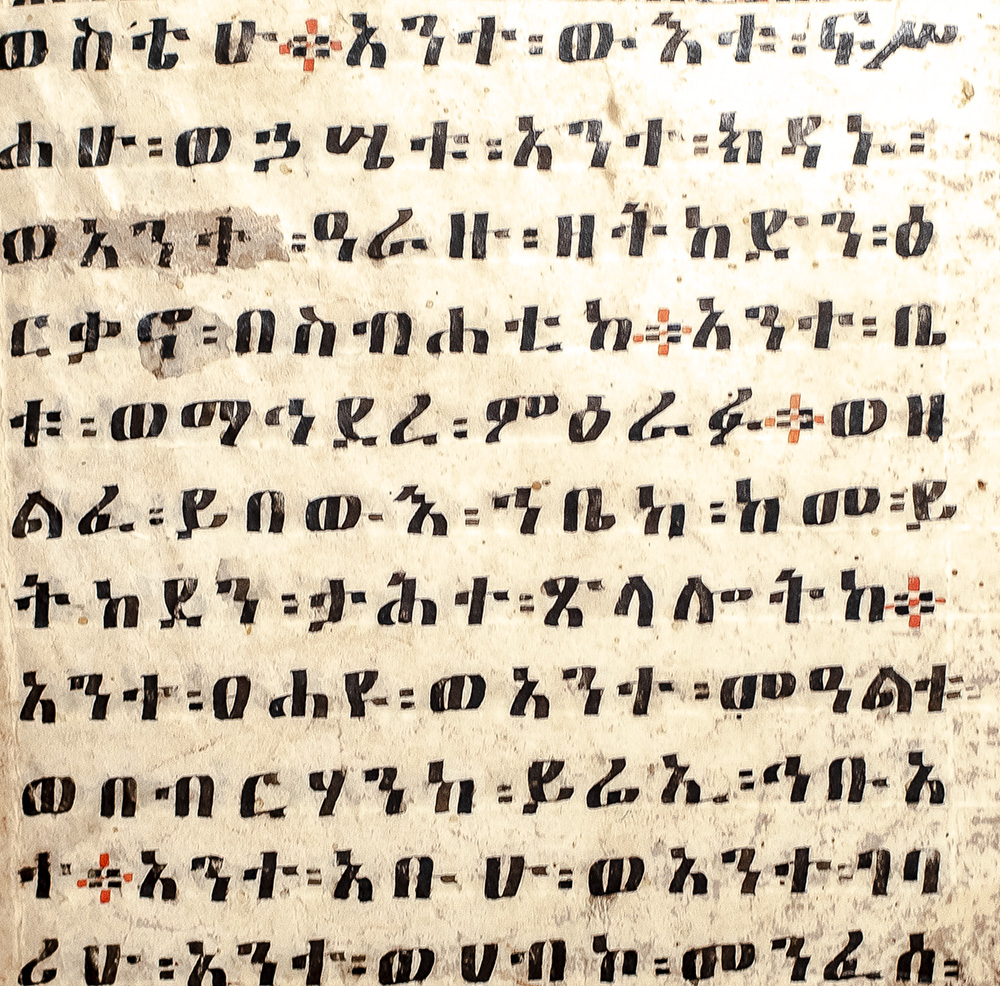 ወስቴሁ፨አንተ፡ውእቱ፡ፍሥ
ሐሁ፡ወኃሤቱ፡አንተ፡ክዳኑ፡
ወአንተ፡ዓራዙ፡ዘትከድን፡ዕ
ርቃኖ፡በስብሐቲከ፨አንተ፡ቤ
ቱ፡ወማኅደረ፡ምዕራፉ፨ወዘ
ልፈ፡ይበውእ፡ኀቤከ፡ከመ፡ይ
ትከደን፡ታሕተ፡ጽላሎትከ፨
አንተ፡ፀሐዩ፡ወአንተ፡መዓልቱ፡
ወበብርሃንከ፡ይሬኢ፡ኀቡአ
ተ፨አንተ፡አቡሁ፡ወአንተ፡ገባ
ሪሁ፡አንተ፡ወሀብኮ፡መንፈሰ፡